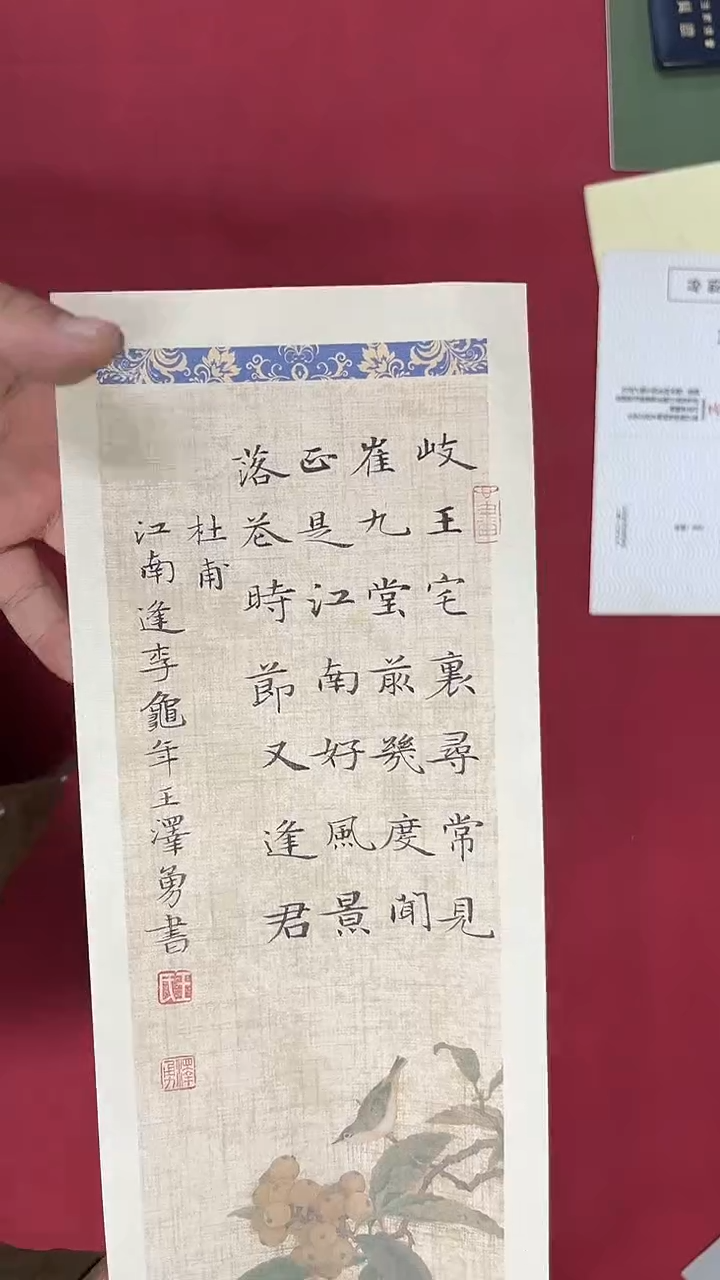 岐王宅裏尋常見
崔九堂前幾度聞
正是江南好風景
落花時節又逢君
杜甫
江南逢李龜年王澤勇書